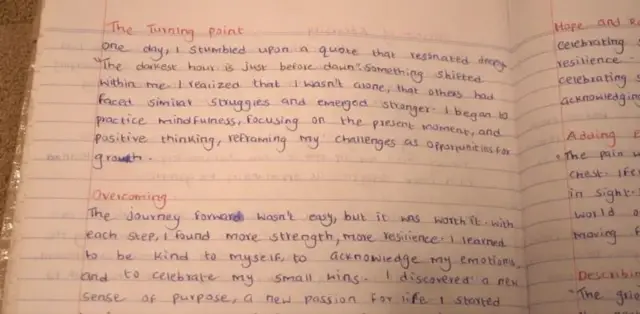 The Turning point
one day, I stumbled upon a quote that resonated deeply
"The darkest hour is just before dawn". Something shifted
within me. I realized that I wasn't alone, that others had
faced similar struggles and emerged stronger. I began to
practice mindfulness, focusing on the present moment, and
positive thinking, reframing my challenges as opportunities for
growth.
Overcoming
The journey forward wasn't easy, but it was worth it. with
each step, I found more strength, more resilience. I learned
to be kind to myself, to acknowledge my emotions,
and to celebrate my small wins. I discovered a new
sense of purpose, a new passion for life. I started
Hope and
celebrating
resilience.
celebrating
acknowledging
Adding
"The pain
chest. life
in sight.
world
moving
Describin
"The